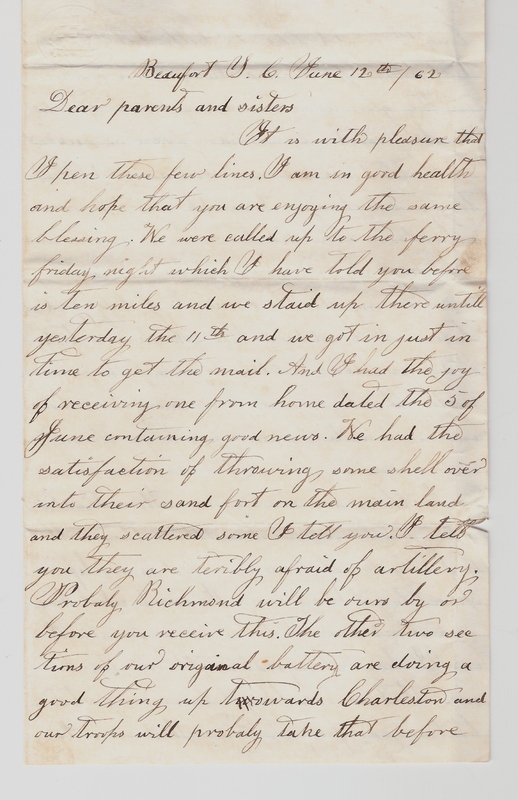 Beaufort S. C. June 12th/62
Dear parents and sisters
It is with pleasure that
I pen these few lines. I am in good health
and hope that you are enjoying the same
blessing. We were called up to the ferry
friday night which I have told you before
is ten miles and we staid up there untill
yesterday the 11th and we got in just in
time to get the mail. And I had the joy
of receiving one from home dated the 5 of
June containing good news. We had the
satisfaction of throwing some shell over
into their sand fort on the main land
and they scattered some I tell you. I tell
you they are teribly afraid of artillery.
Probaly Richmond will be ours by or
before you receive this. The other two sec
tions of our origainal battery are doing a
good thing up towards Charleston and
our troops will probaly take that before